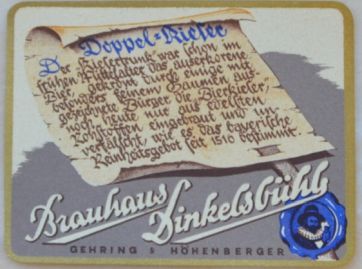 Doppel-Kieser
Der Kiesertrunk war schon im
frühen Mittelalter das auserkorene
Bier, gekrönt durch einige mit
besonders feinem Gaumen aus-
gezeichnete Bürger die Bierkieser
noch heute nur aus edelsten
Rohstoffen eingebraut und un-
verfälscht, wie es das bayerische
Reinheitsgebot seit 1516 bestimmt.
Brauhaus
Dinkelsbühl
GEHRING & HÖHENBERGER